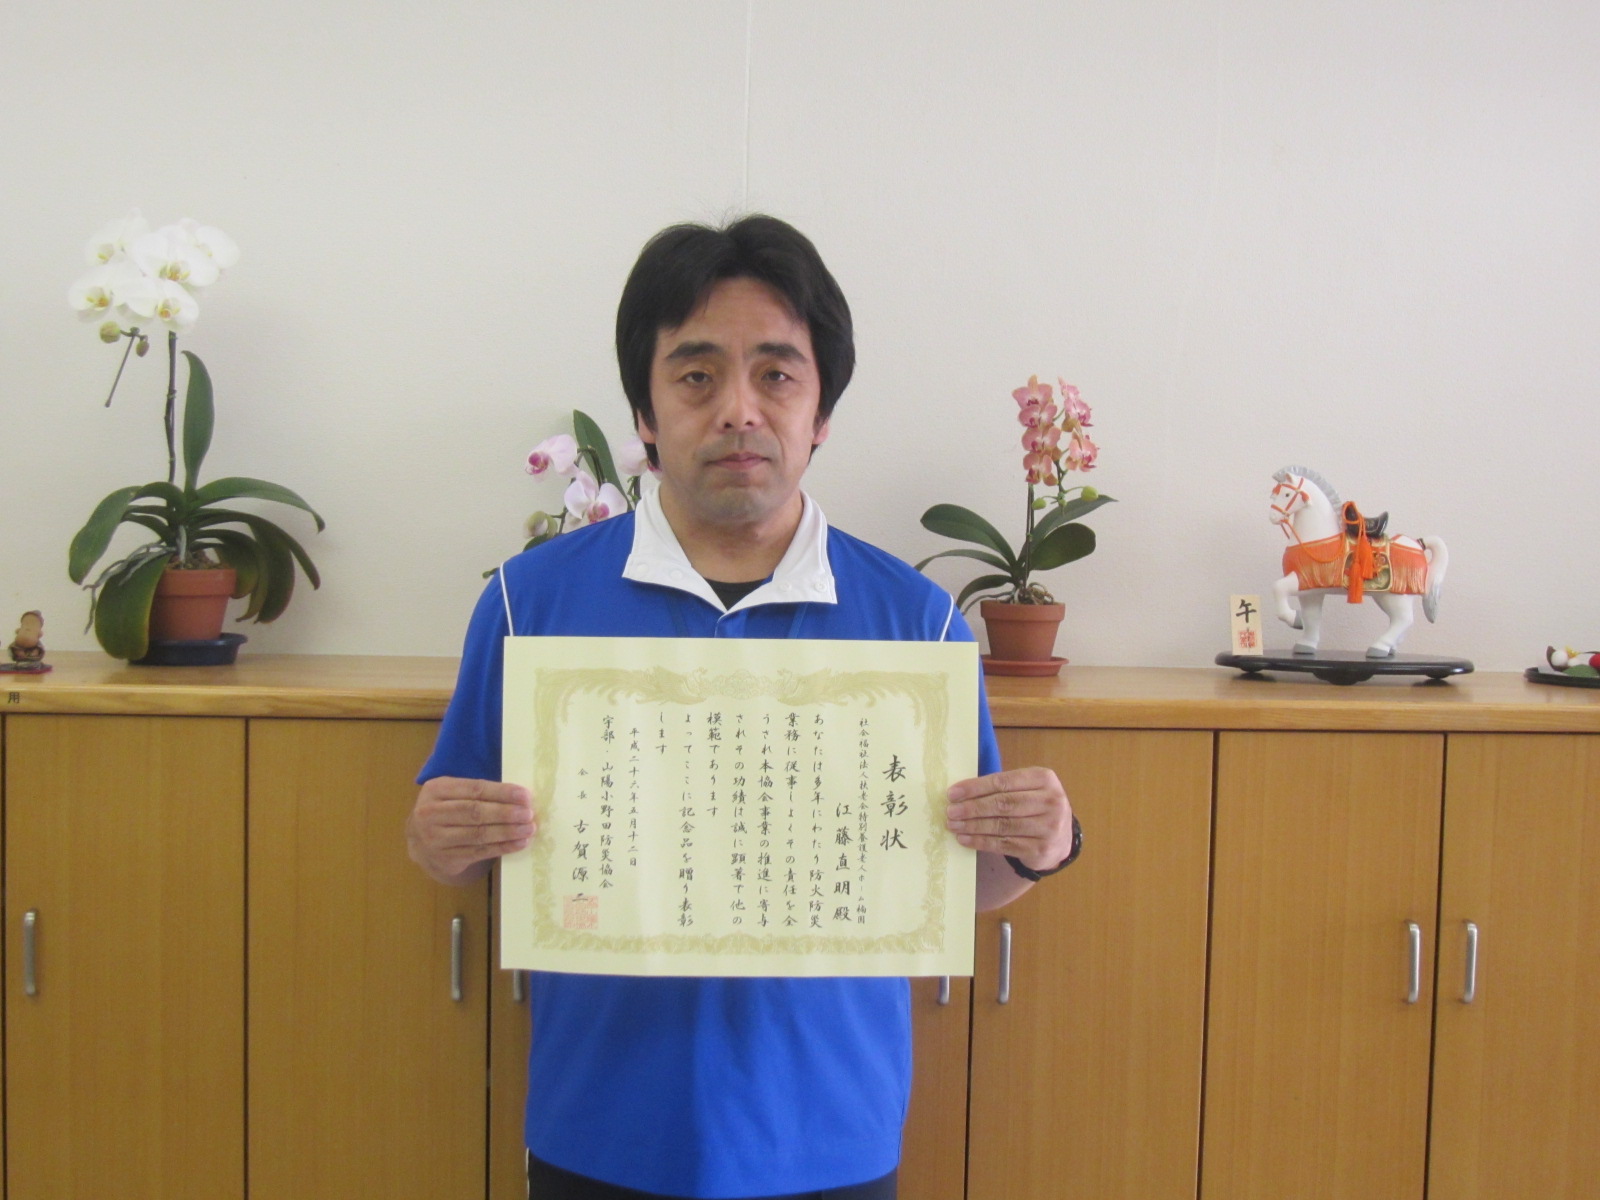 表彰状
社会福祉法人扶老会特別養護老人ホーム楠園
江藤直明殿
あなたは多年にわたり防火防災
業務に従事しよくその責任を全
うされ本協会事業の推進に寄与
されその功績は誠に顕著で他の
模範であります
よってここに記念品を贈り表彰
します
平成二十六年五月十二日
宇部・山陽小野田防災協会
会長 古賀源二
午
用